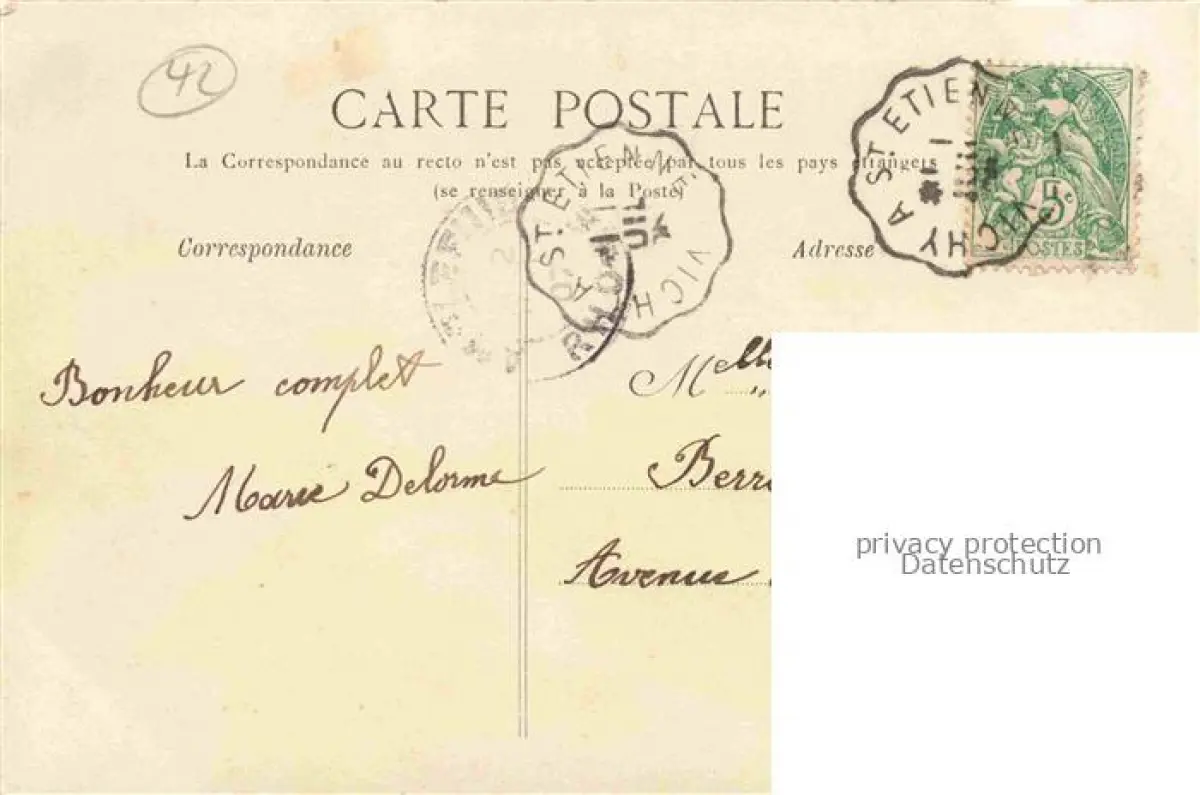 42
CARTE POSTALE
La Correspondance au recto n'est pas acceptée par tous les pays étrangers
(se renseigner à la Poste)
Correspondance
Adresse
VICHY A ST ETIENNE
1
JUIL
VICHY A ST ETIENNE
1
JUIL
RHO
5c
POSTES
Bonheur complet
Marie Delorme
Melle
Berr
Avenue
privacy protection
Datenschutz